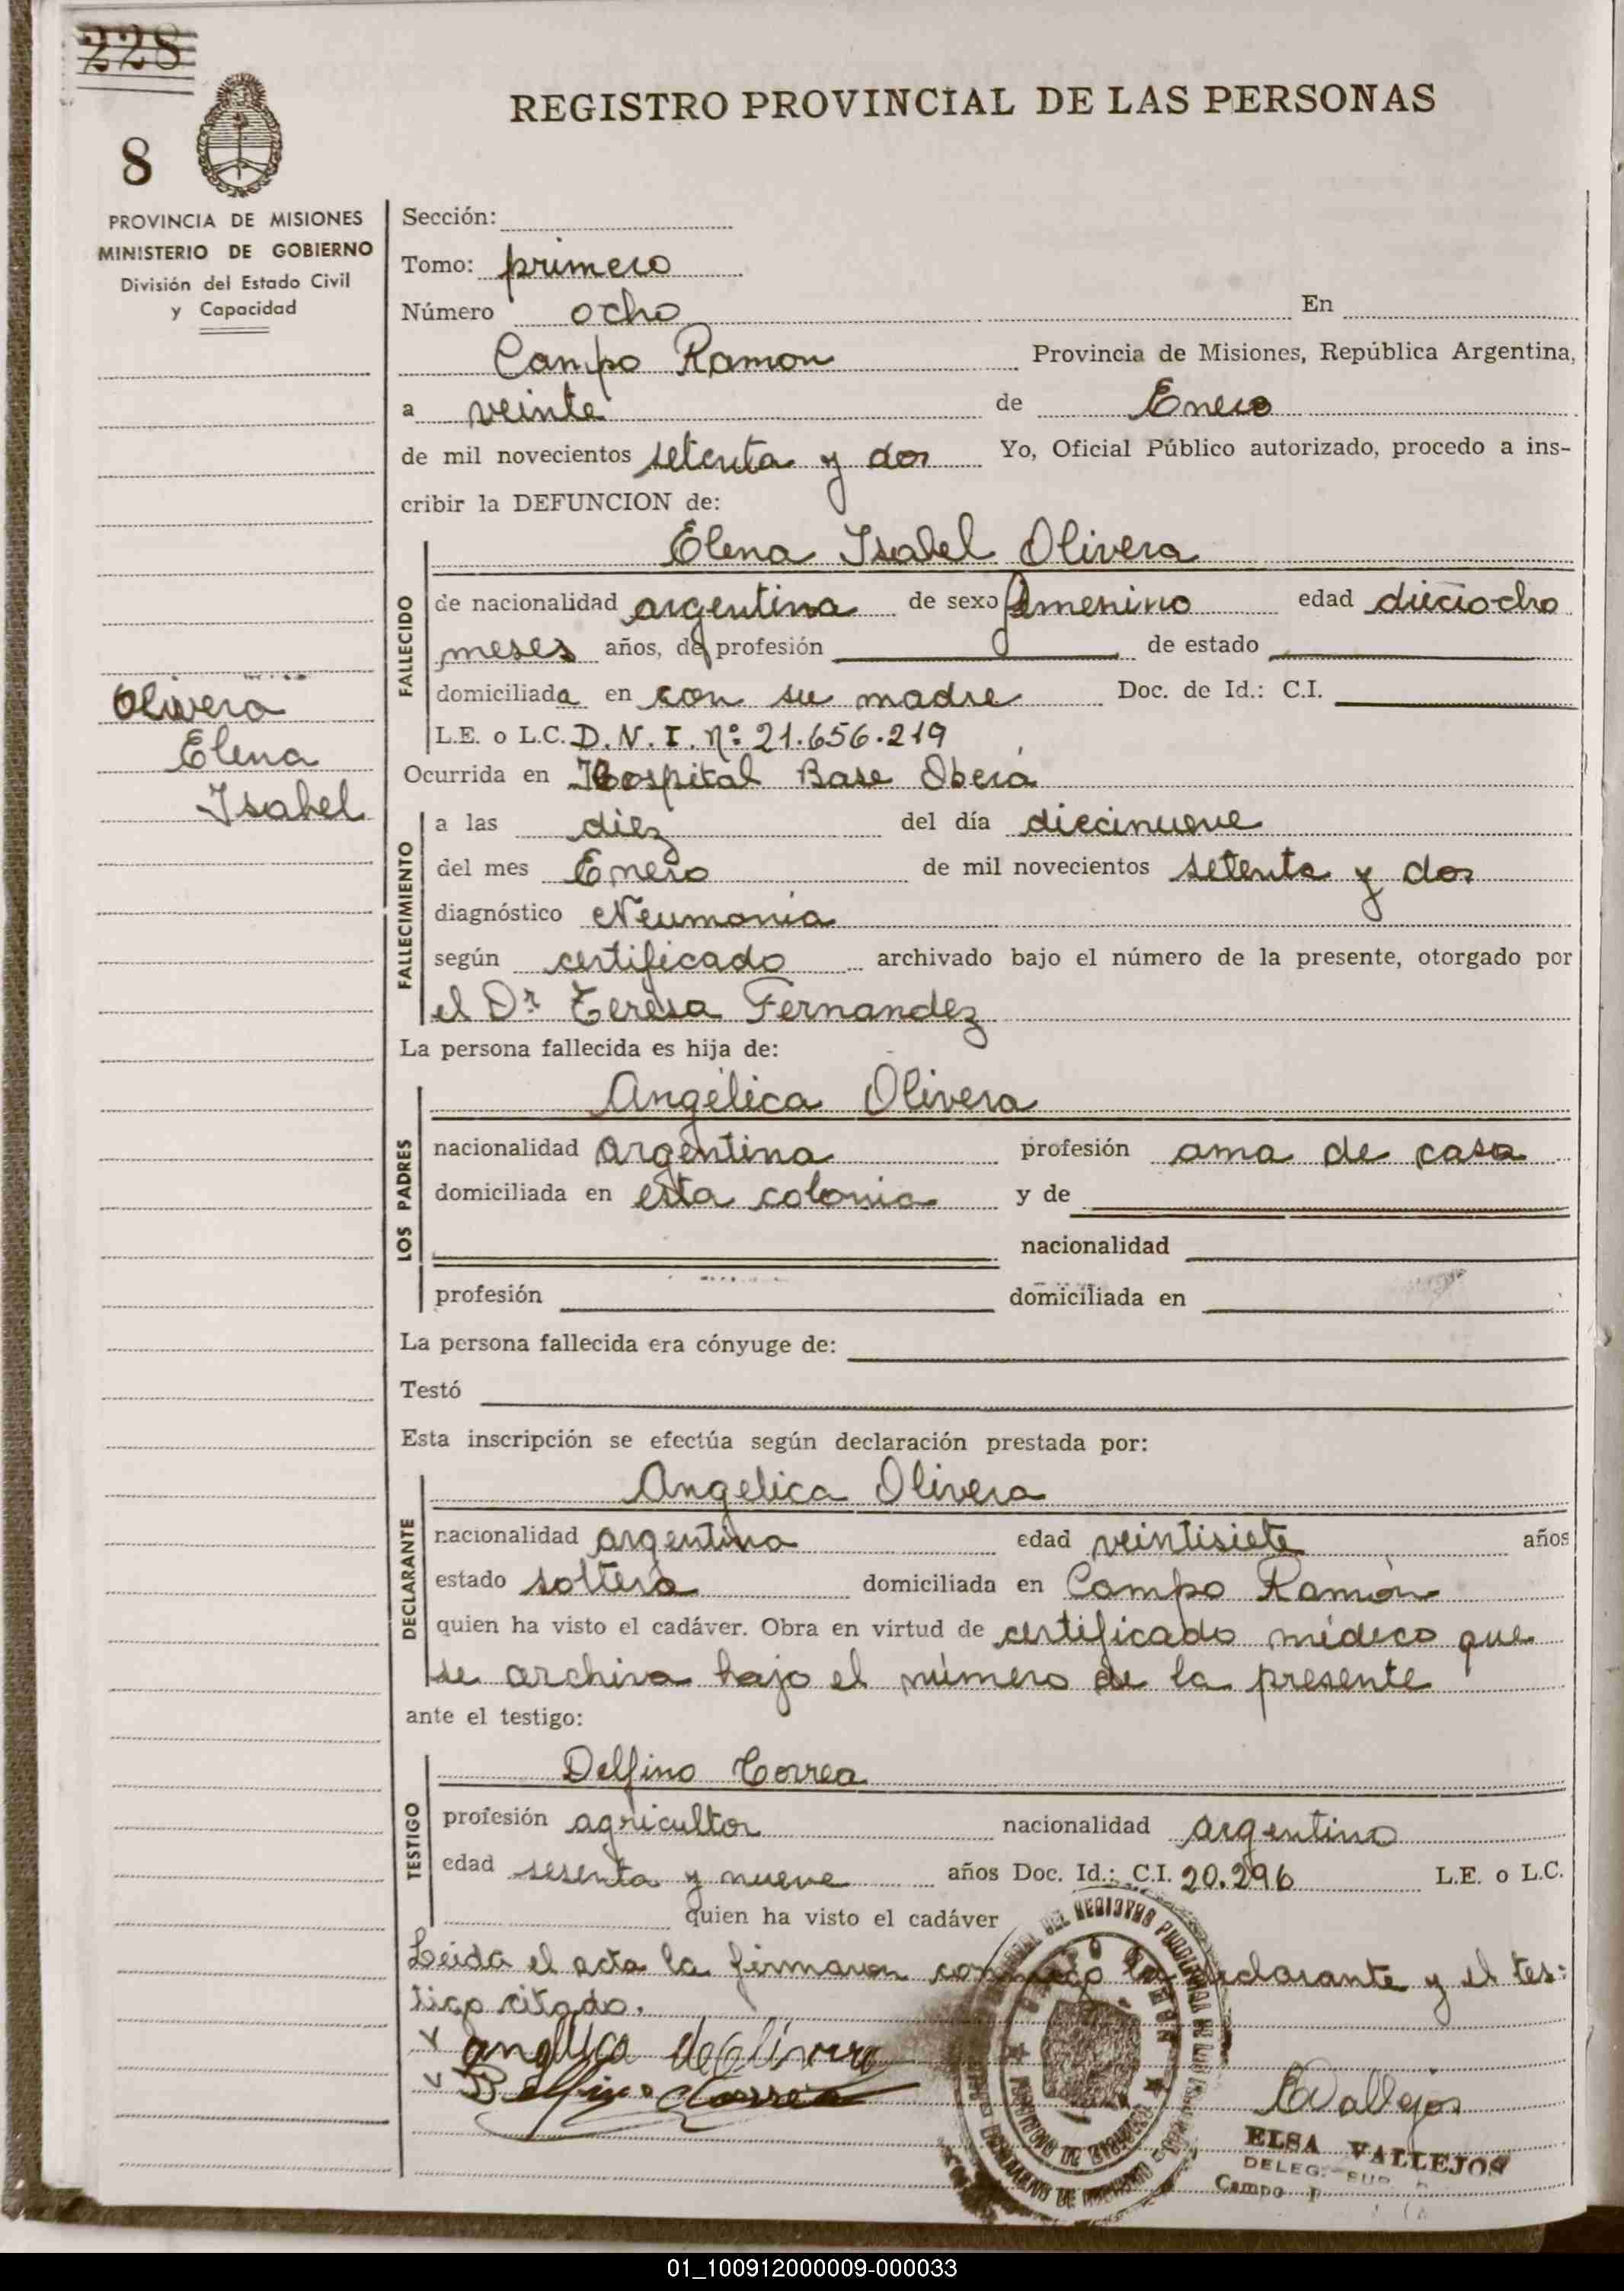 228
8
REGISTRO PROVINCIAL DE LAS PERSONAS
PROVINCIA DE MISIONES
MINISTERIO DE GOBIERNO
División del Estado Civil
y Capacidad
Olivera
Elena
Isabel
Sección:
Tomo: primero
Número ocho En
Campo Ramon Provincia de Misiones, República Argentina,
a veinte de Enero
de mil novecientos setenta y dos Yo, Oficial Público autorizado, procedo a ins-
cribir la DEFUNCION de:
FALLECIDO
Elena Isabel Olivera
de nacionalidad argentina de sexo femenino edad dieciocho
meses años, de profesión de estado
domiciliada en con su madre Doc. de Id.: C.I.
L.E. o L.C. D.N.I. Nº 21.656.219
Ocurrida en Hospital Base Oberá
FALLECIMIENTO
a las diez del día diecinueve
del mes Enero de mil novecientos setenta y dos
diagnóstico Neumonía
según certificado archivado bajo el número de la presente, otorgado por
el Dr Teresa Fernandez
La persona fallecida es hija de:
LOS PADRES
Angélica Olivera
nacionalidad argentina profesión ama de casa
domiciliada en esta colonia y de
nacionalidad
profesión domiciliada en
La persona fallecida era cónyuge de:
Testó
Esta inscripción se efectúa según declaración prestada por:
DECLARANTE
Angelica Olivera
nacionalidad argentina edad veintisiete años
estado soltera domiciliada en Campo Ramón
quien ha visto el cadáver. Obra en virtud de certificado médico que
se archiva bajo el número de la presente
ante el testigo:
TESTIGO
Delfino Correa
profesión agricultor nacionalidad argentino
edad sesenta y nueve años Doc. Id.: C.I. 20.296 L.E. o L.C.
quien ha visto el cadáver
Leída el acta la firmaron conmigo la declarante y el tes-
tigo citado.
angelica de Olivera
Delfino Correa
EVallejos
ELSA VALLEJOS
DELEG.
Campo
01_100912000009-000033